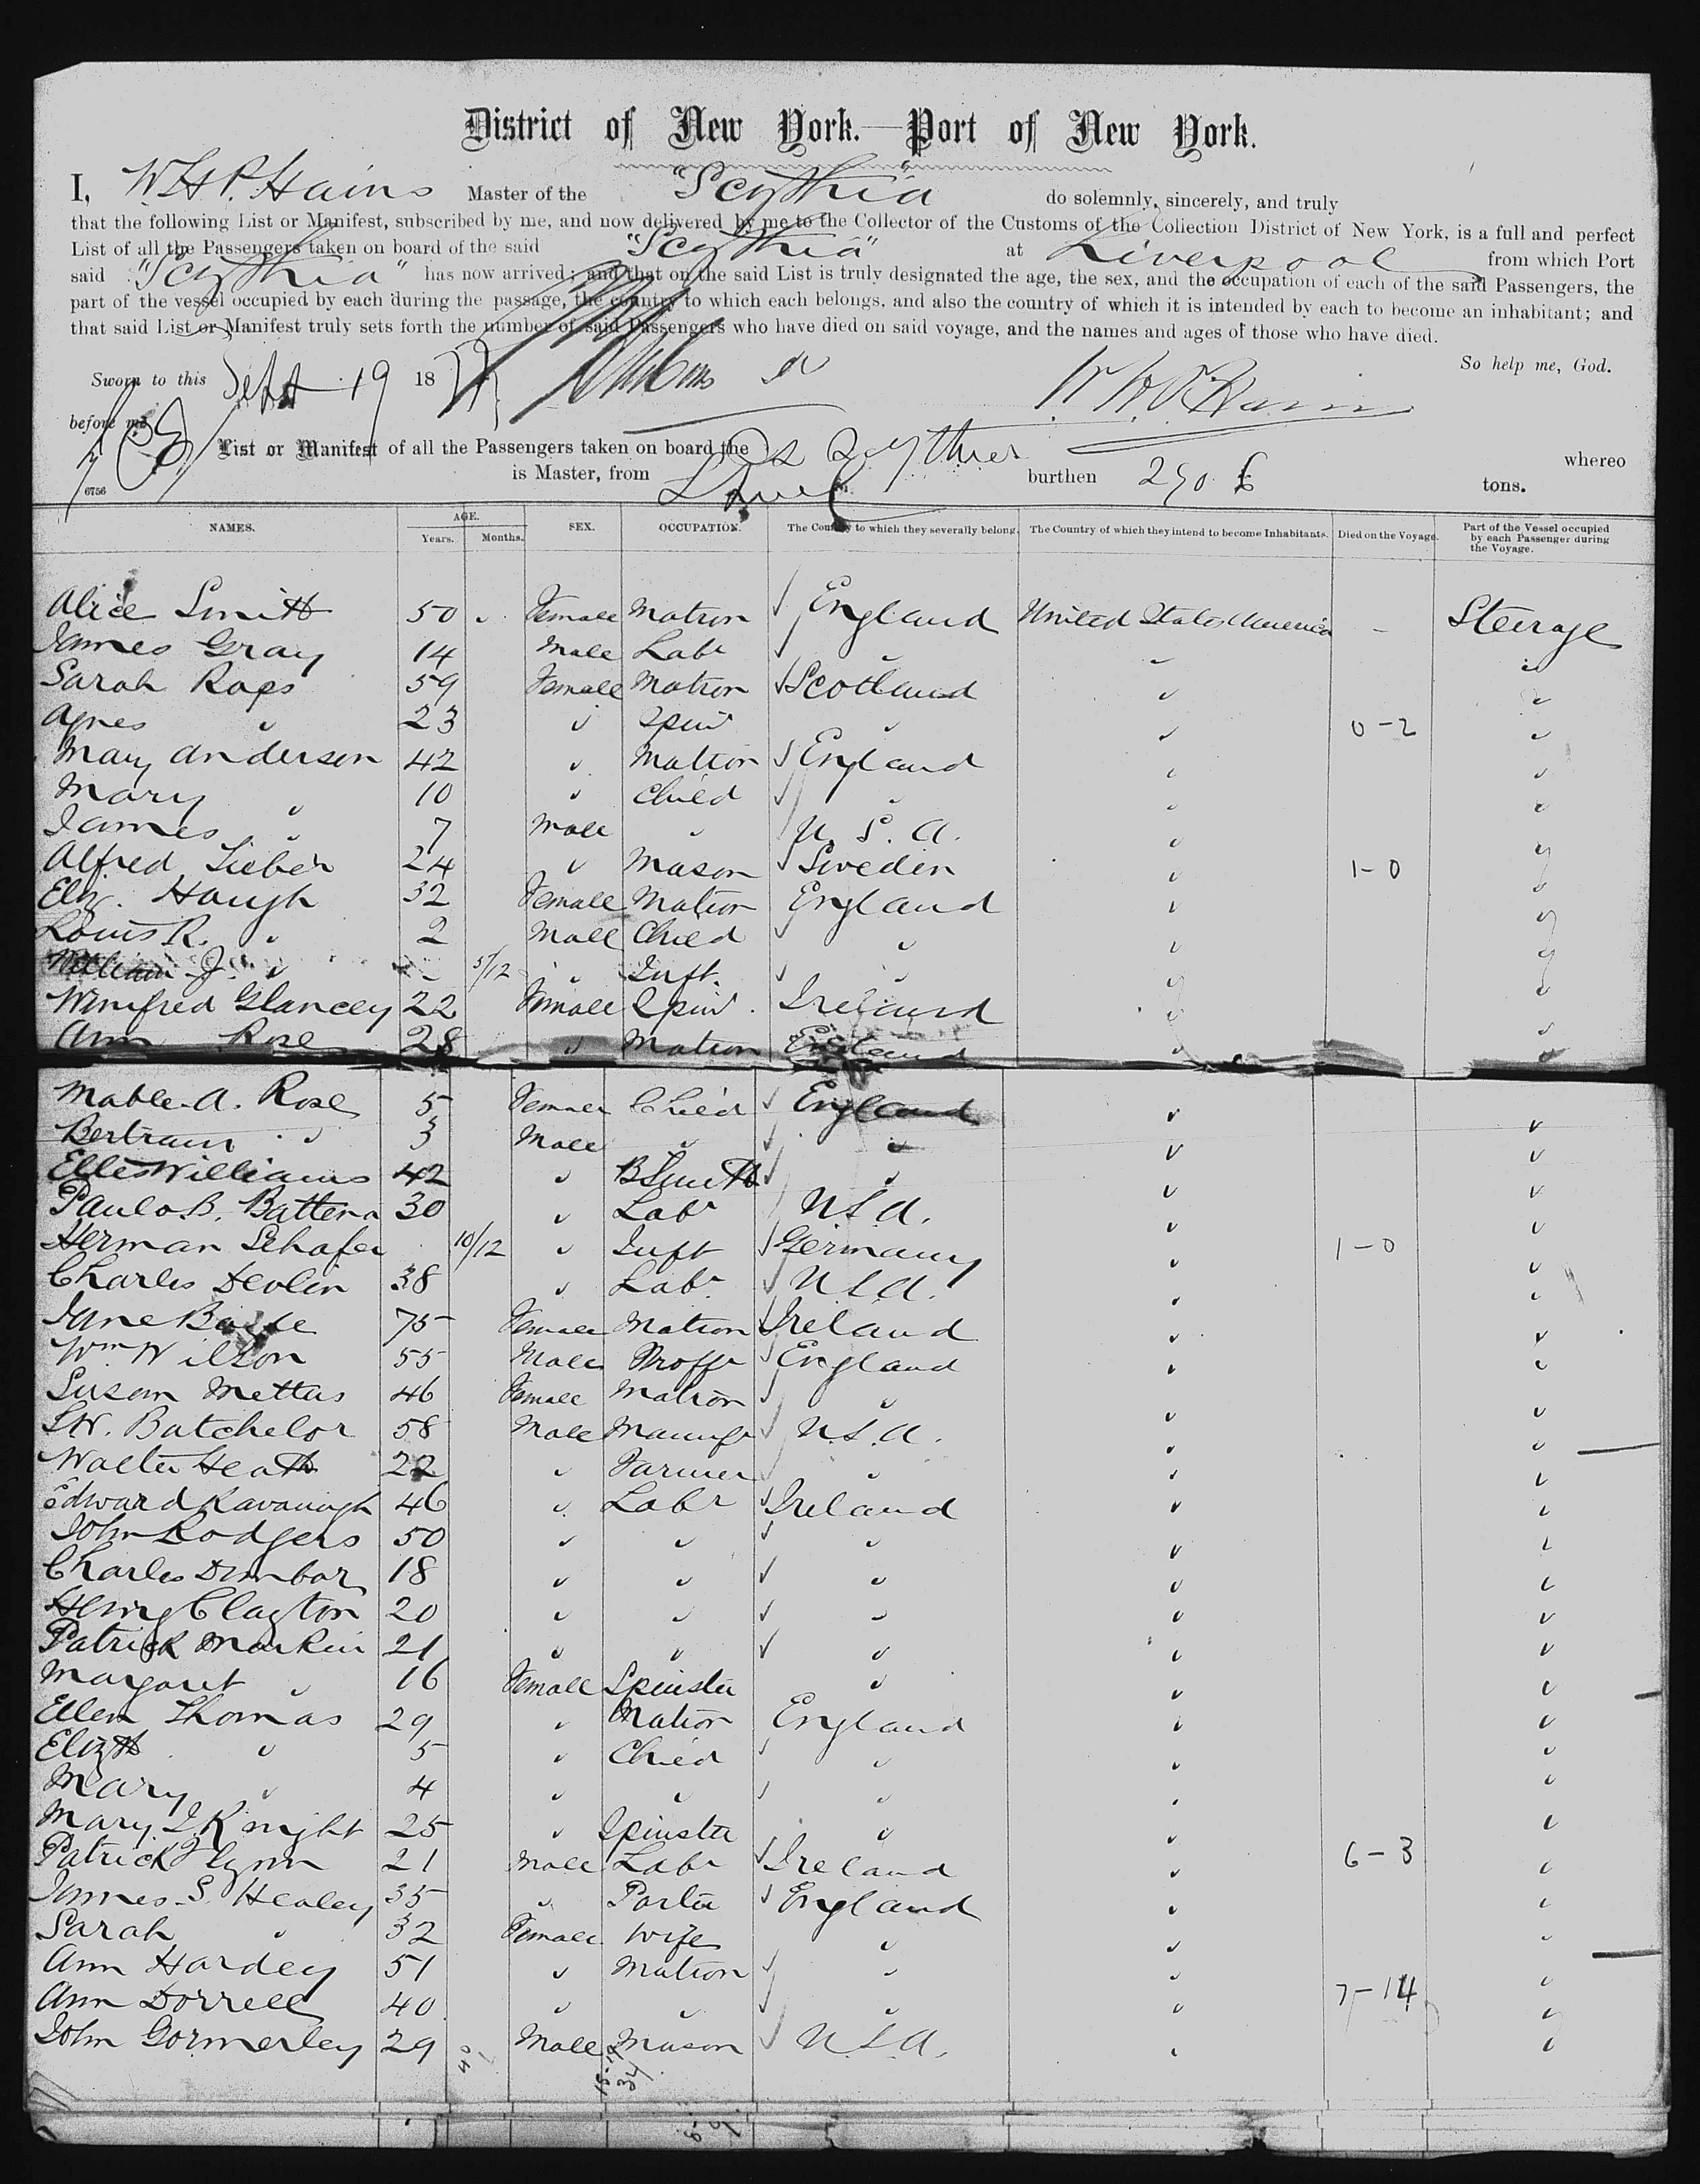 District of New York.—Port of New York.
I, W.H.P. Hains Master of the "Scythia" do solemnly, sincerely, and truly
that the following List or Manifest, subscribed by me, and now delivered by me to the Collector of the Customs of the Collection District of New York, is a full and perfect
List of all the Passengers taken on board of the said "Scythia" at Liverpool from which Port
said "Scythia" has now arrived; and that on the said List is truly designated the age, the sex, and the occupation of each of the said Passengers, the
part of the vessel occupied by each during the passage, the country to which each belongs, and also the country of which it is intended by each to become an inhabitant; and
that said List or Manifest truly sets forth the number of said Passengers who have died on said voyage, and the names and ages of those who have died.
So help me, God.
Sworn to this Sept 19 18
W.H.P. Hains
before me
List or Manifest of all the Passengers taken on board the SS Scythia whereo
is Master, from burthen 290 tons.
6756
NAMES. AGE. Years. Months. SEX. OCCUPATION. The Country to which they severally belong. The Country of which they intend to become Inhabitants. Died on the Voyage. Part of the Vessel occupied by each Passenger during the Voyage.
Alice Smith 50 " Female Matron ✓ England United States America - Steerage
James Gray 14 Male Labr ✓ " " "
Sarah Raps 59 Female Matron ✓ Scotland " "
Agnes " 23 " Spinr " " 0-2 "
Mary Anderson 42 " Matron ✓ England " "
Mary " 10 " Child ✓ " " "
James " 7 Male " U.S.A. " "
Alfred Lieber 24 " Mason ✓ Sweden " 1-0 "
Eliz. Haugh 32 Female Matron England " "
Louis R. " 2 Male Child ✓ " " "
William J. " - 5/12 " Inft. ✓ " " "
Winifred Glancey 22 Female Spinr. Ireland " "
Ann Rose 28 " Matron England " "
Mable A. Rose 5 Female Child ✓ England " "
Bertram " 3 Male " ✓ " " "
Ellis Williams 42 " BSmith ✓ " " "
Paulo B. Battena 30 " Labr U.S.A. " "
Herman Schafer 10/12 " Inft ✓ Germany " 1-0 "
Charles Devlin 38 " Labr ✓ U.S.A. " "
Jane 75 Female Matron ✓ Ireland " "
Wm Wilson 55 Male Proffr ✓ England " "
Susan Mettus 46 Female Matron ✓ " " "
S.W. Batchelor 58 Male Manufr ✓ U.S.A. " "
Walter Heath 22 " Farmer ✓ " " "
Edward Kavanagh 46 " Labr ✓ Ireland " "
John Rodgers 50 " " ✓ " " "
Charles Dunbar 18 " " ✓ " " "
Henry Clayton 20 " " ✓ " " "
Patrick Markin 21 " " ✓ " " "
Margaret " 16 Female Spinster " " "
Ellen Thomas 29 " Matron England " "
Elizth " 5 " Child ✓ " " "
Mary " 4 " " ✓ " " "
Mary J. Knight 25 " Spinster " " "
Patrick Flynn 21 Male Labr ✓ Ireland " 6-3 "
James S. Healey 35 " Porter ✓ England " "
Sarah " 32 Female Wife " " "
Ann Hardey 51 " Matron ✓ " " "
Ann Dorrell 40 " " ✓ " " 7-14 "
John Gormerley 29 Male Mason ✓ U.S.A. " "